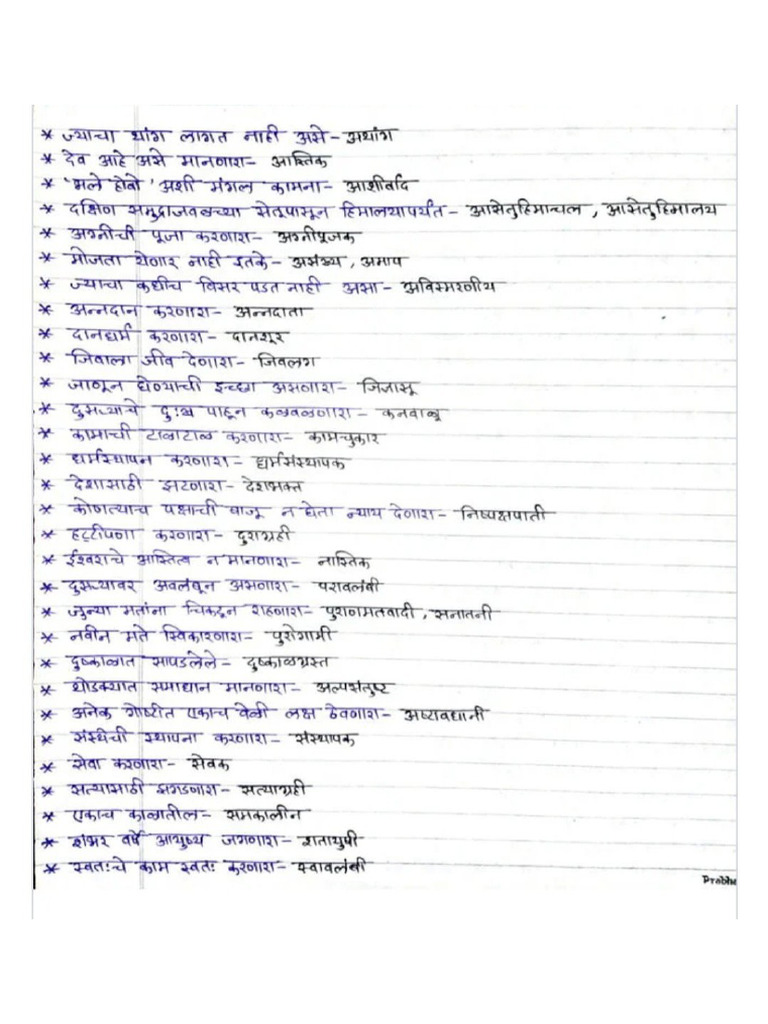 * ज्याचा थांग लागत नाही असे - अथांग
* देव आहे असे मानणारा - आस्तिक
* 'भले होवो' अशी मंगल कामना - आशीर्वाद
* दक्षिण समुद्राजवळच्या सेतूपासून हिमालयापर्यंत - आसेतुहिमाचल, आसेतुहिमालय
* अग्नीची पूजा करणारा - अग्नीपूजक
* मोजता येणार नाही इतके - असंख्य, अमाप
* ज्याचा कधीच विसर पडत नाही असा - अविस्मरणीय
* अन्नदान करणारा - अन्नदाता
* दानधर्म करणारा - दानशूर
* जिवाला जीव देणारा - जिवलग
* जाणून घेण्याची इच्छा असणारा - जिज्ञासू
* दुसऱ्याचे दुःख पाहून कळवळणारा - कनवाळू
* कामाची टाळाटाळ करणारा - कामचुकार
* धर्मस्थापन करणारा - धर्मसंस्थापक
* देशासाठी झटणारा - देशभक्त
* कोणत्याच पक्षाची बाजू न घेता न्याय देणारा - निष्पक्षपाती
* हट्टीपणा करणारा - दुराग्रही
* ईश्वराचे अस्तित्व न मानणारा - नास्तिक
* दुसऱ्यावर अवलंबून असणारा - परावलंबी
* जुन्या मतांना चिकटून राहणारा - पुराणमतवादी, सनातनी
* नवीन मते स्विकारणारा - पुरोगामी
* दुष्काळात सापडलेले - दुष्काळग्रस्त
* थोडक्यात समाधान मानणारा - अल्पसंतुष्ट
* अनेक गोष्टीत एकाच वेळी लक्ष ठेवणारा - अष्टावधानी
* संस्थेची स्थापना करणारा - संस्थापक
* सेवा करणारा - सेवक
* सत्यासाठी झगडणारा - सत्याग्रही
* एकाच काळातील - समकालीन
* शंभर वर्षे आयुष्य जगणारा - शतायुषी
* स्वतःचे काम स्वतः करणारा - स्वावलंबी